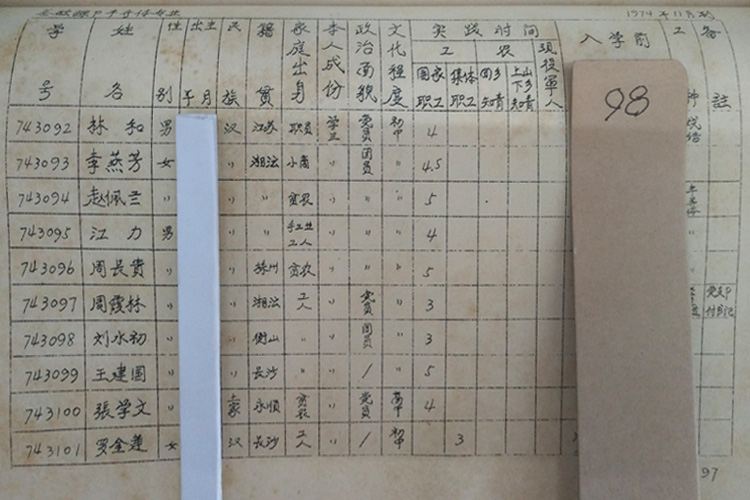 1974年11月
学号 姓名 性别 出生年月 民族 籍贯 家庭出身 本人成份 政治面貌 文化程度 实践时间 入学前 工 备註
工 农 现役军人
国家职工 集体职工 回乡知青 上山下乡知青
743092 林和 男 汉 江苏 职员 学生 党员 初中 4
743093 李燕芳 女 〃 湘潭 小商 〃 团员 〃 4.5
743094 赵佩兰 〃 〃 〃 贫农 〃 〃 〃 5
743095 江力 男 〃 〃 手工业工人 〃 〃 〃 4
743096 周长贵 〃 〃 株州 贫农 〃 〃 〃 5
743097 周霞林 〃 〃 湘潭 工人 〃 党员 〃 3
743098 刘水初 〃 〃 衡山 〃 〃 团员 〃 3
743099 王建国 〃 〃 长沙 〃 〃 / 〃 5
743100 張学文 〃 土家 永顺 贫农 〃 党员 高中 4
743101 罗金莲 女 汉 长沙 工人 〃 / 初中 3
98
97